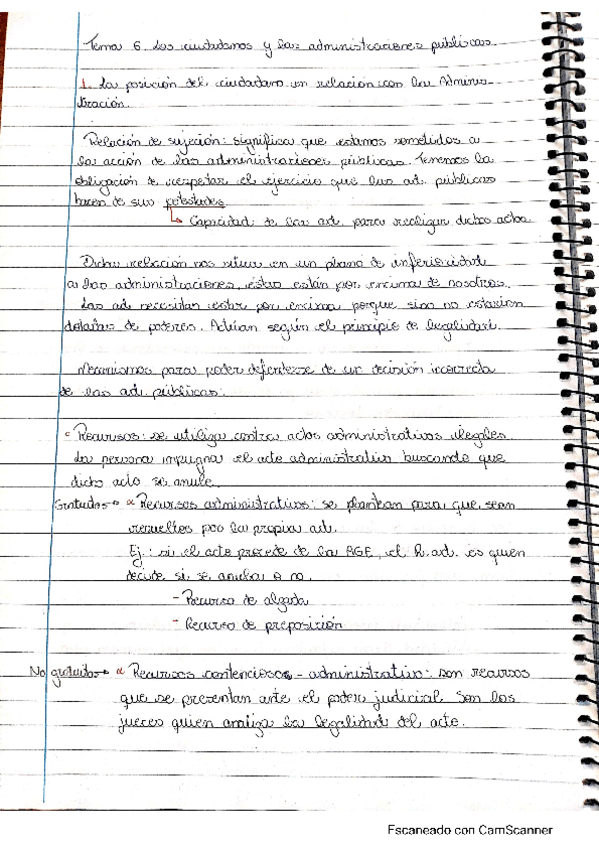 Tema 6. Los ciudadanos y las administraciones públicas.
1. La posición del ciudadano en relación con la Adminis-
tración.
Relación de sujeción: significa que estamos sometidos a
la acción de las administraciones públicas. Tenemos la
obligación de respetar el ejercicio que las ad. públicas
hacen de sus potestades
↳ Capacidad de las ad. para realizar dichos actos.
Dicha relación nos sitúa en un plano de inferioridad
a las administraciones, éstas están por encima de nosotros.
Las ad necesitan estar por encima porque sino no estarían
dotadas de poderes. Actúan según el principio de legalidad.
Mecanismos para poder defenderse de una decisión incorrecta
de las ad. públicas:
Recursos: se utiliza contra actos administrativos ilegales
La persona impugna el acto administrativo buscando que
dicho acto se anule.
Gratuitos → α Recursos administrativos: se plantean para que sean
resueltos por la propia ad.
Ej.: si el acto procede de la AGE, el h. ad. es quien
decide si se anula o no.
- Recurso de alzada
- Recurso de preposición
No gratuitos → α Recursos contenciosos - administrativo: son recursos
que se presentan ante el poder judicial. Son los
jueces quien analiza la legalidad del acto.
Escaneado con CamScanner